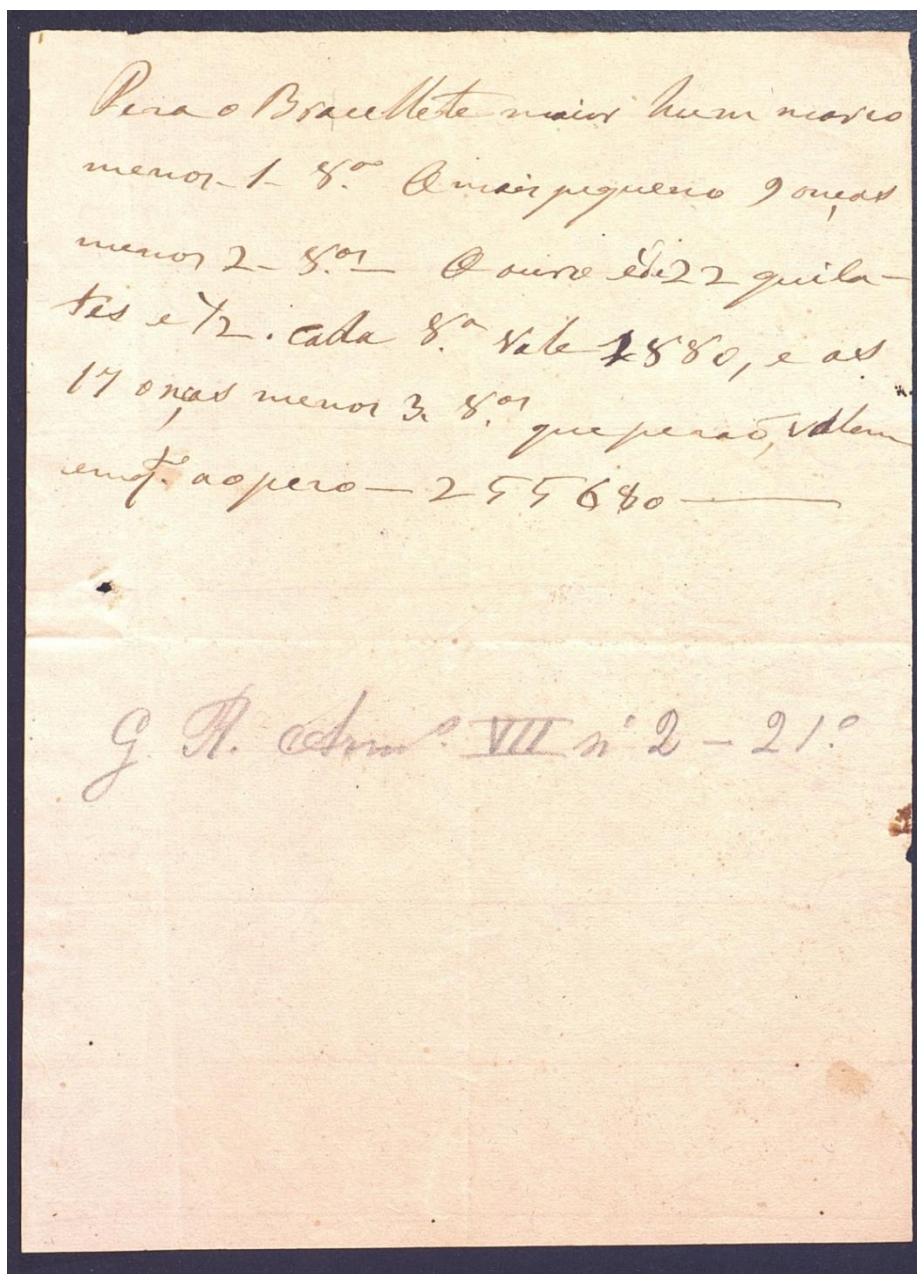 Peza o Bracellete maior hum marco
menos 1- 8.ª O mais piqueno 9 onças
menos 2- 8.as O ouro é de 22 quila-
tes e 1/2. cada 8.ª Vale 1880, e as
17 onças menos 3. 8.as que pezaõ, valem
ao pezo — 255680 —
G. R. Arm.º VII nº 2 - 21.º